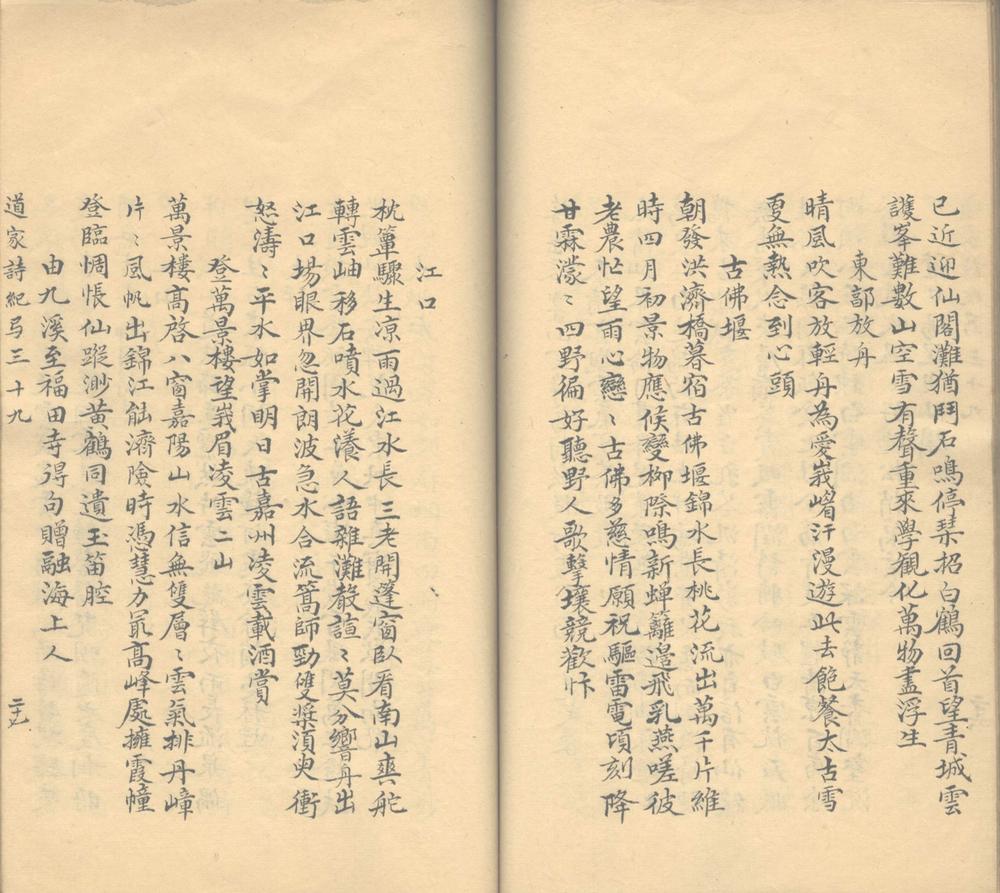 已近迎仙閣灘猶鬥石鳴停琹招白鶴回首望青城雲
護峯難數山空雪有聲重來學觀化萬物盡浮生
東部放舟
晴風吹客放輕舟為愛峩嵋汗漫遊此去飽餐太古雪
夏無熱念到心頭
古佛堰
朝發洪濟橋暮宿古佛堰錦水長桃花流出萬千片維
時四月初景物應候變柳際鳴新蟬籬邉飛乳燕嗟彼
老農忙望雨心戀〻古佛多慈情願祝驅雷電頃刻降
甘霖濛〻四野徧好聽野人歌擊壤競歡忭
江口
枕簟驟生凉雨過江水長三老開蓬窗臥看南山爽舵
轉雲岫移石噴水花瀁人語雜灘聲諠〻莫分響舟出
江口場眼界忽開朗波急水合流篙師勁雙槳須臾衝
怒濤〻平水如掌明日古嘉州凌雲載酒賞
登萬景樓望峩眉凌雲二山
萬景樓高啓八窗嘉陽山水信無雙層〻雲氣排丹嶂
片〻風帆出錦江能濟險時憑慧力最高峰處擁霞幢
登臨惆悵仙蹤渺黃鶴同遺玉笛腔
由九溪至福田寺得句贈融海上人
道家詩紀弓三十九